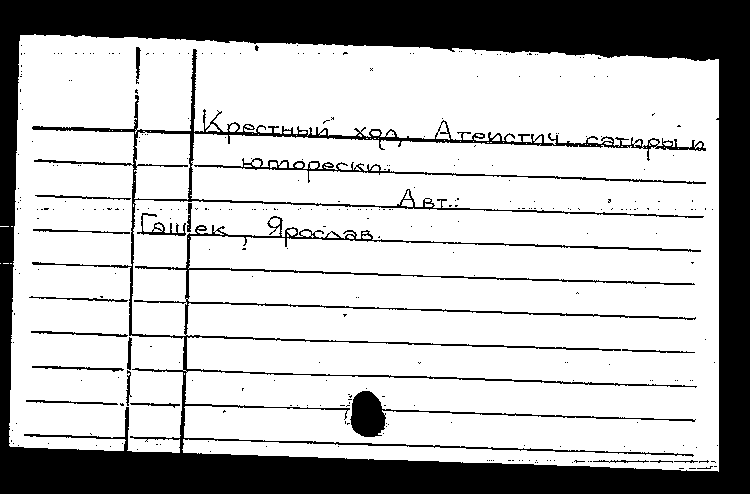 Крестный ход. Атеистич. сатиры и
юморески.
Авт.:
Гашек, Ярослав.